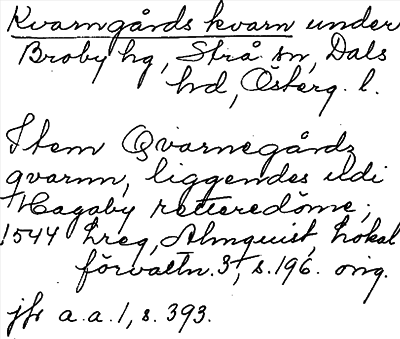 Kvarngårds kvarn under
Broby hg, Strå sn, Dals
hd, Österg. l.
Item Qvarnegårdz
qvarnn, liggendes udi
Hagaby retteredöme;
1544 hreg, Almquist, Lokal
förvaltn. 3, s. 196. orig.
jfr a.a. 1, s. 393.